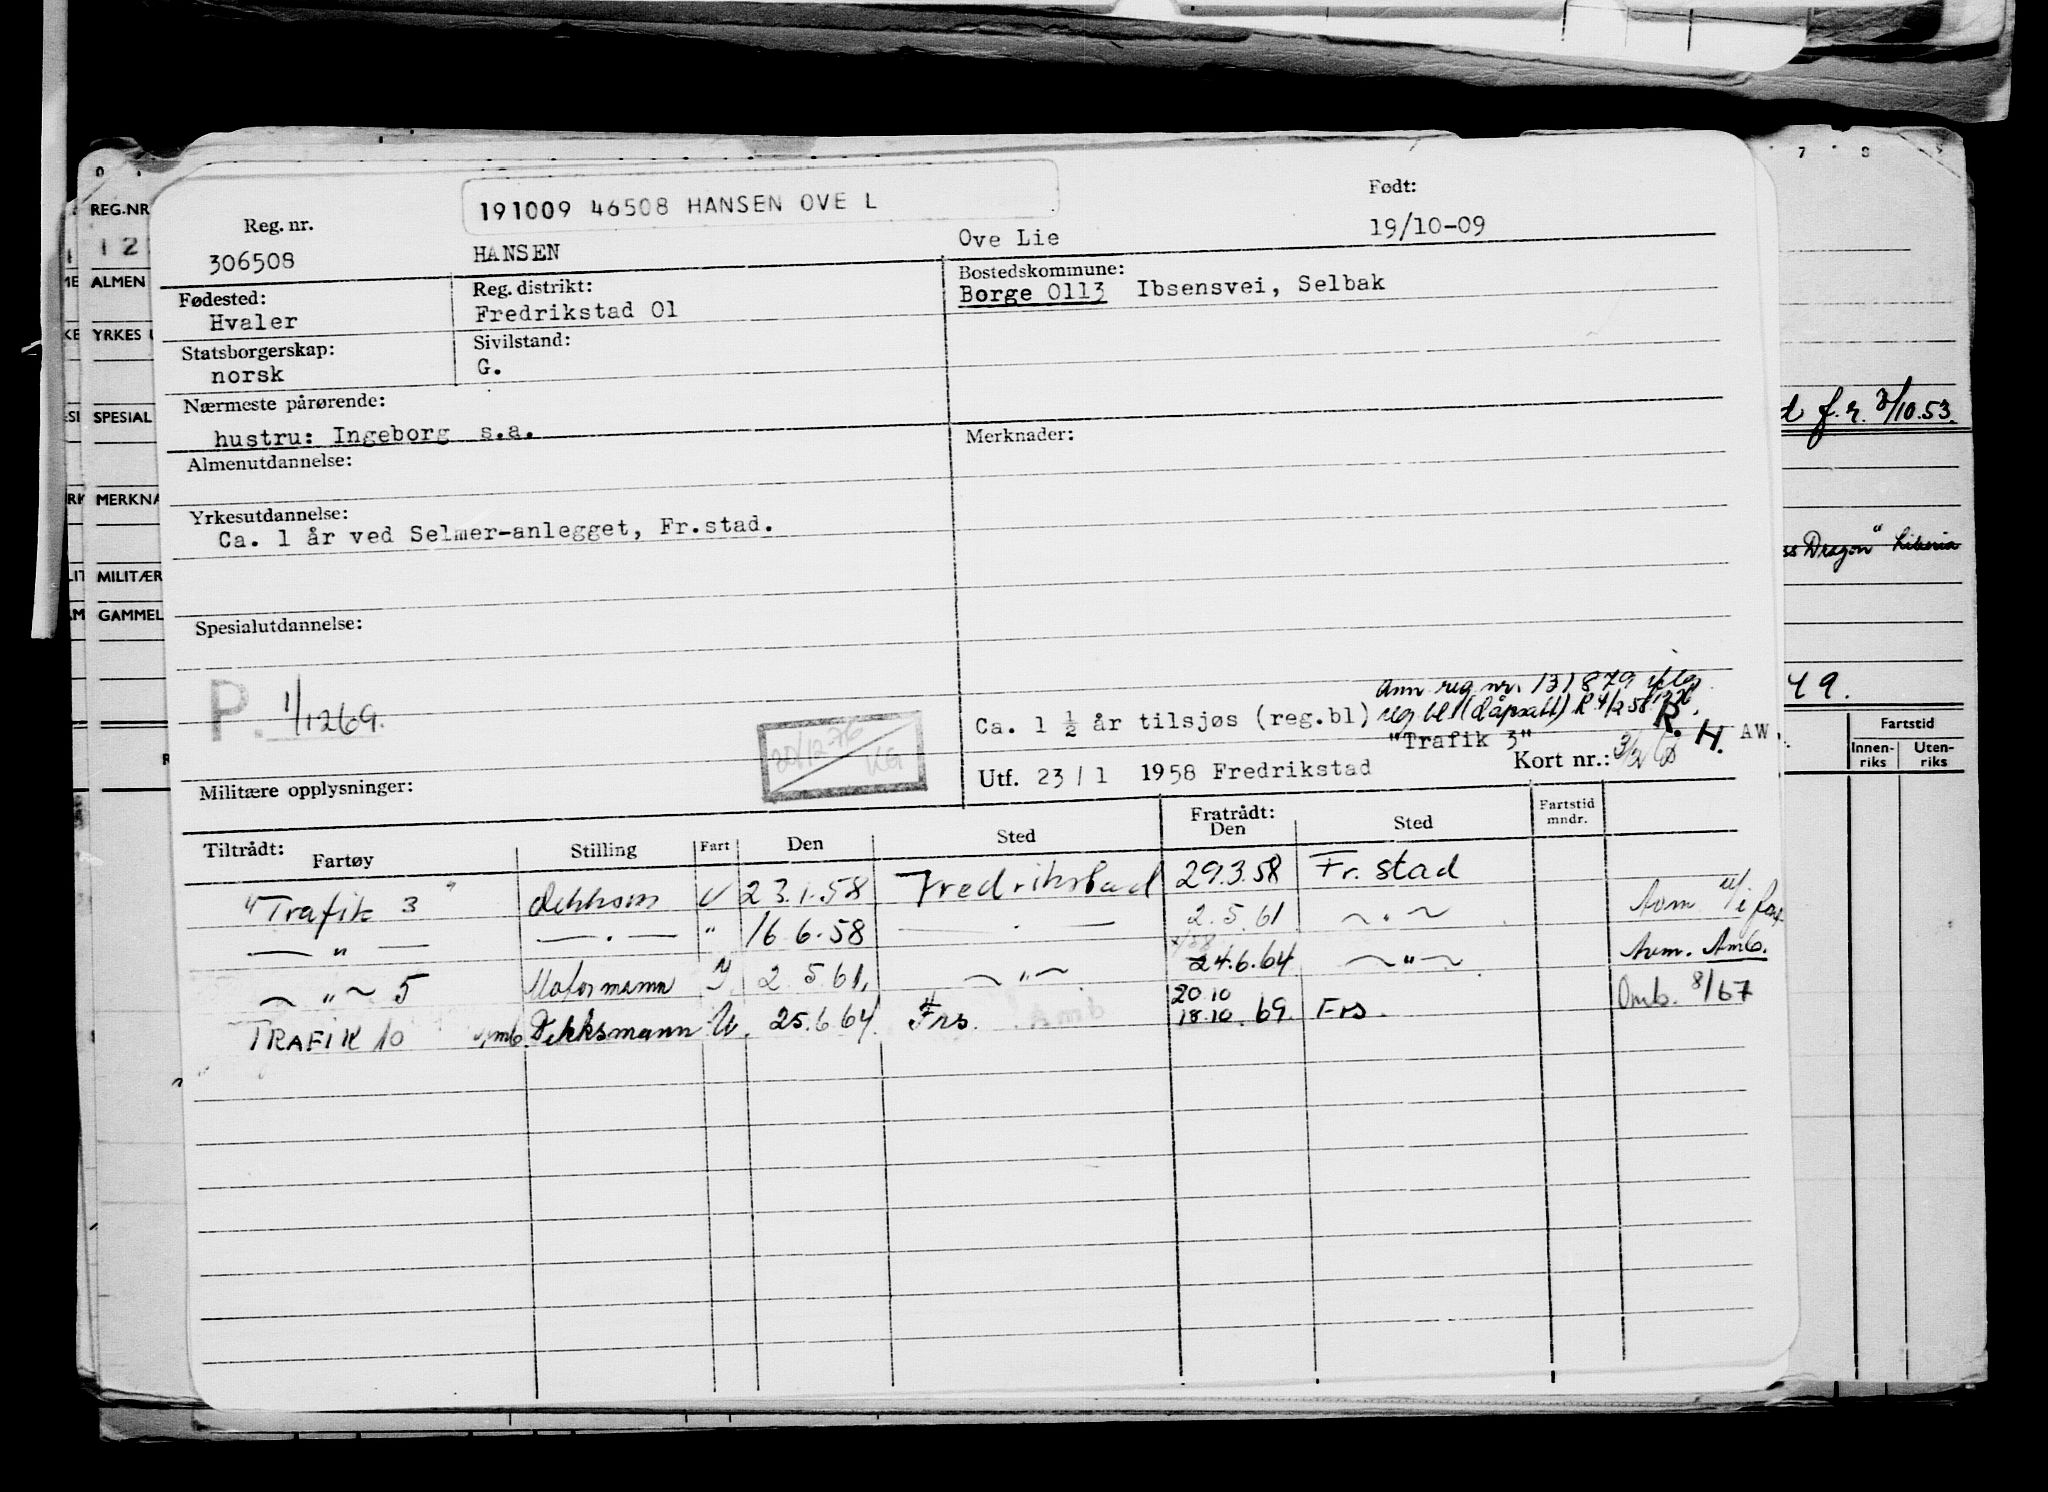 191009 46508 HANSEN OVE L
Født:
Reg. nr.
306508
HANSEN
Ove Lie
19/10-09
Fødested:
Hvaler
Reg. distrikt:
Fredrikstad 01
Bostedskommune:
Borge 0113 Ibsensvei, Selbak
Statsborgerskap:
norsk
Sivilstand:
G.
Nærmeste pårørende:
hustru: Ingeborg s.a.
Merknader:
Almenutdannelse:
Yrkesutdannelse:
Ca. 1 år ved Selmer-anlegget, Fr.stad.
Spesialutdannelse:
P. 1/1269.
Ann reg nr. 131879
Ca. 1 ½ år tilsjøs (reg.bl)
R. H. AW.
"Trafik 3"
20/12-76
KG
Utf. 23/1 1958 Fredrikstad
Kort nr.:
Militære opplysninger:
Tiltrådt:
Fartøy
Stilling
Fart
Den
Sted
Fratrådt:
Den
Sted
Fartstid
mndr.
"Trafik 3" 23.1.58 Fredrikstad 29.3.58 Fr.stad
— " — — " — " 16.6.58 — " — 2.5.61 ~ " ~
~ " ~ 5 Motormann 2.5.61. ~ " ~ 24.6.64 ~ " ~ Amb.
TRAFIK 10 Dekksmann U. 25.6.64. Frs. 20.10 18.10.69. Frs. Omb. 8/67
REG.NR
12
ALMEN
YRKES
SPESIAL
MERKNA
MILITÆR
GAMMEL
7 8
d f.r. 3/10.53.
ss Dragon" Liberia
49.
Fartstid
Innen-
riks
Uten-
riks